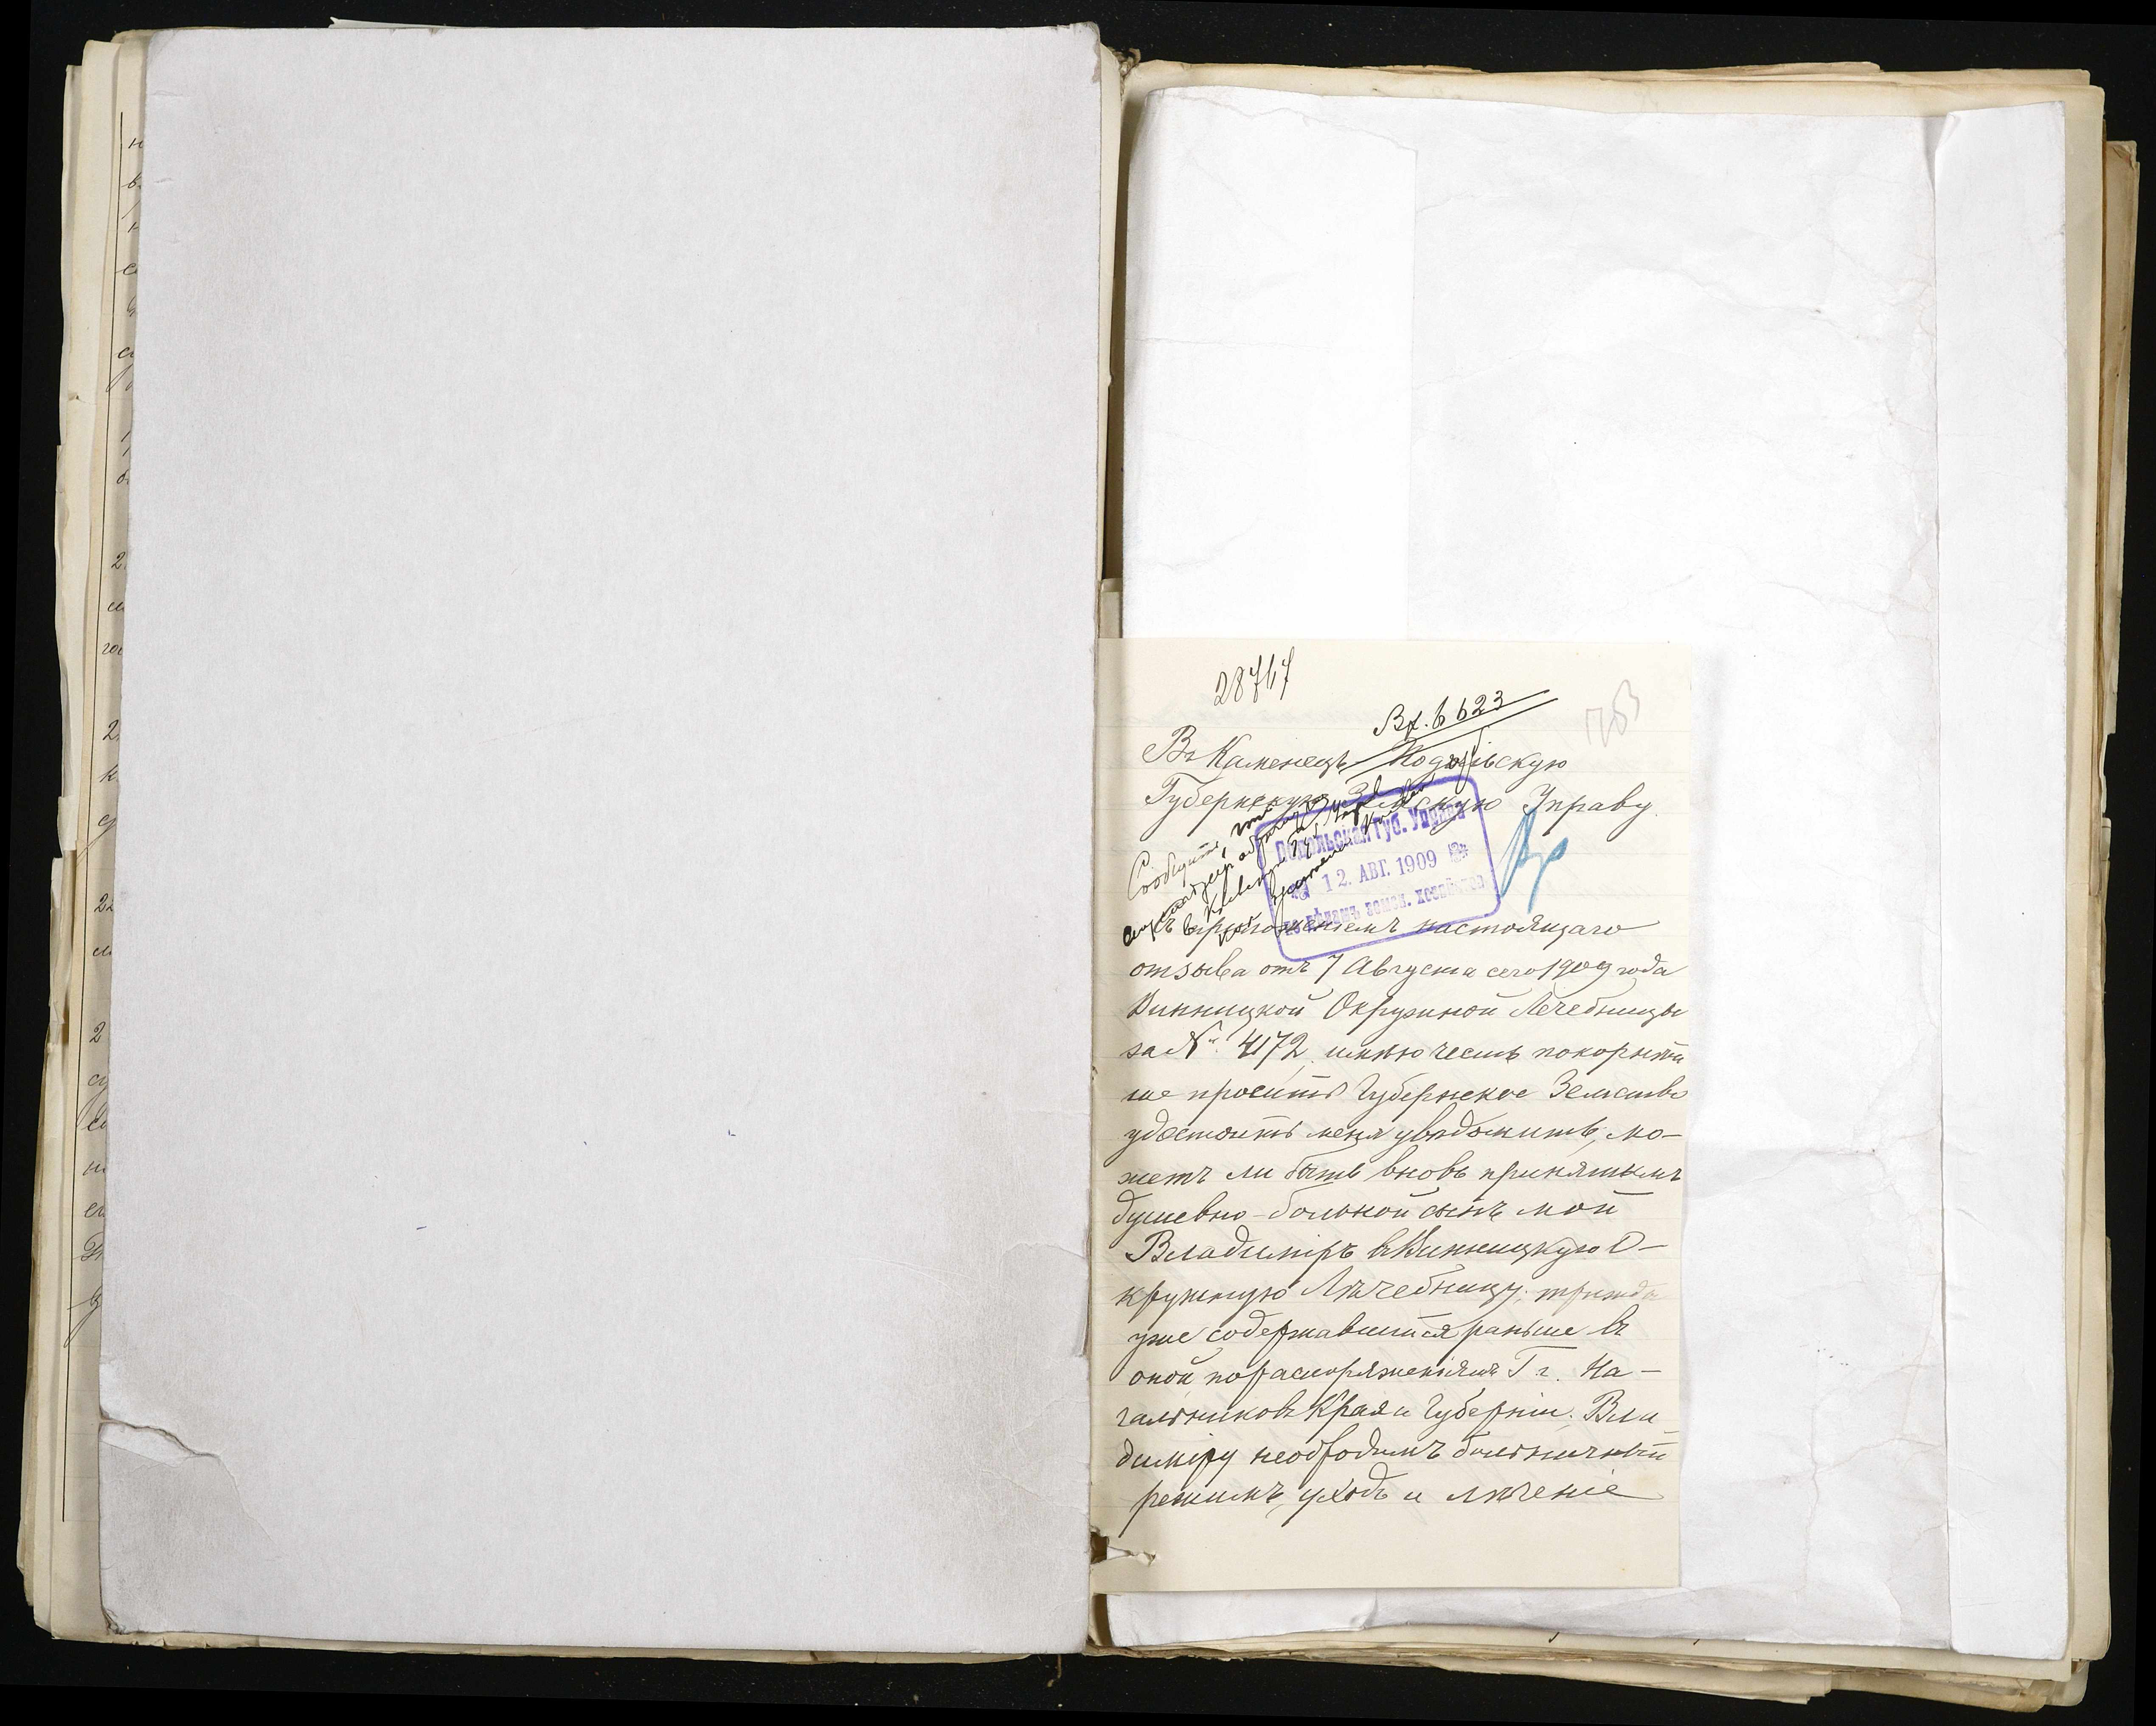 28717
Вх. 6623
753
Въ Каменецъ Подольскую
Губернскую Земскую Управу.
Сообщить, что
Подольская Губ. Управа
12. АВГ. 1909
по дѣламъ земск. хозяйства
Съ приложеніемъ настоящаго
отзыва отъ 7 Августа сего 1909 года
Винницкой Окружной Лечебницы
за № 4172, имѣю честь покорнѣй
ше просить Губернское Земство
удостоить меня увѣдомить, мо-
жетъ ли быть вновь принятымъ
душевно-больной сынъ мой
Владиміръ въ Винницкую О-
кружную Лѣчебницу, трижды
уже содержавшійся раньше въ
оной по распоряженіямъ Гг. На-
чальниковъ Края и Губерніи. Вла
диміру необходимъ больничный
режимъ, уходъ и лѣченіе